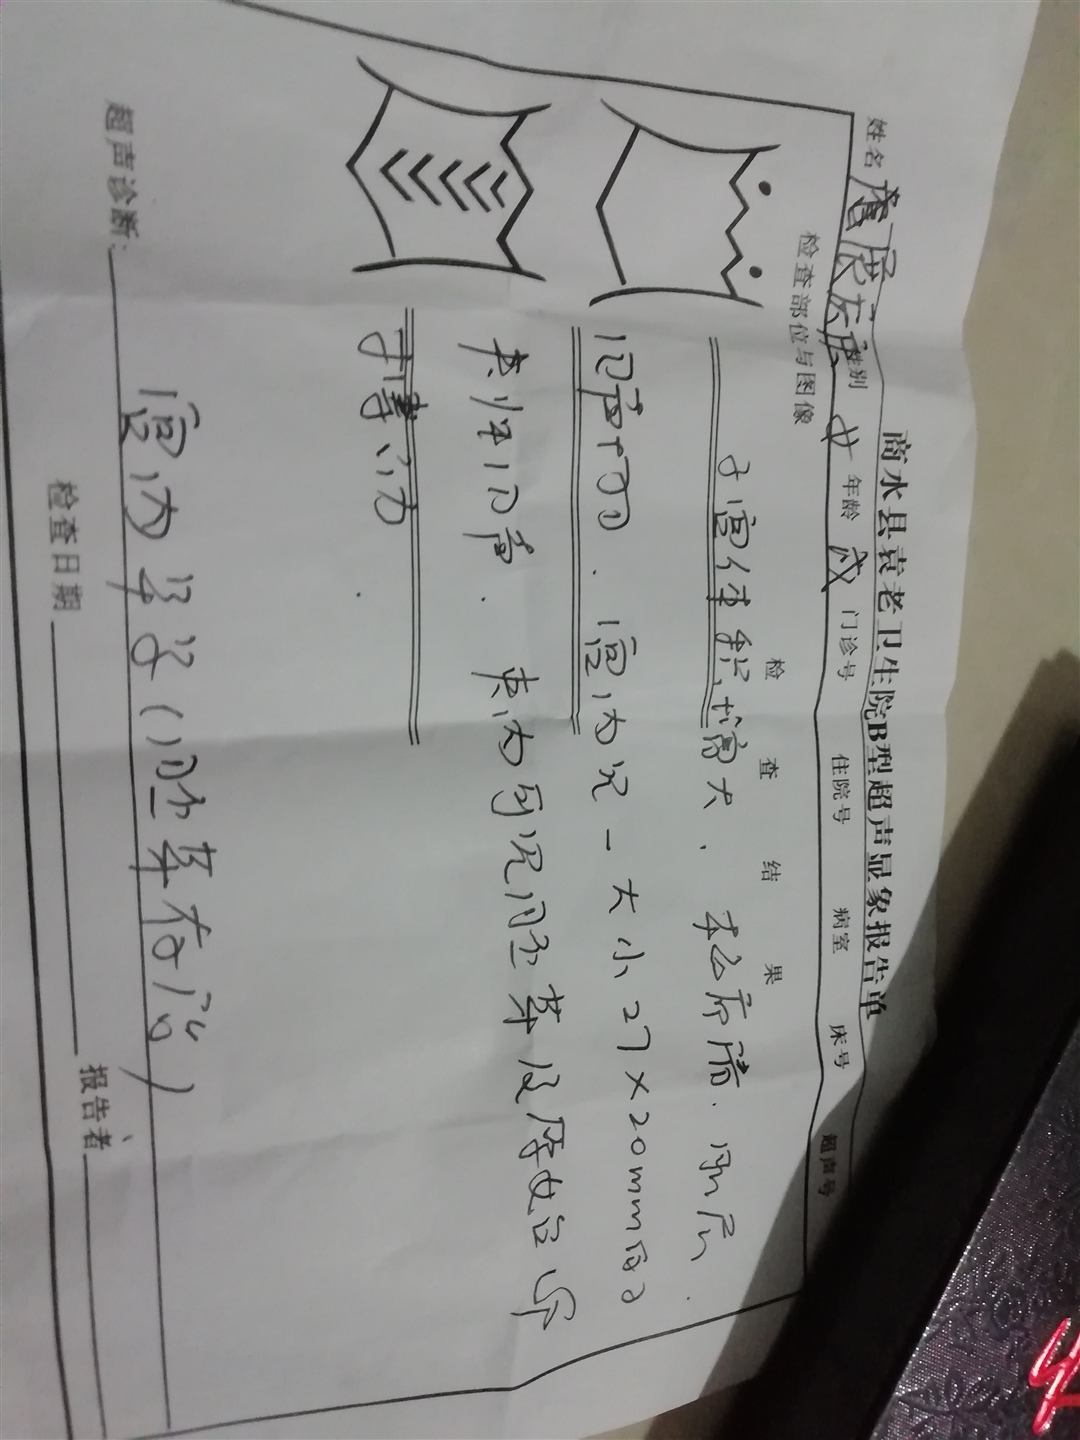 商水县袁老卫生院B型超声显象报告单
姓名 性别 女 年龄 成 门诊号 住院号 病室 床号 超声号
检查部位与图像
检查结果
子宫体积增大、
回声均匀.宫内见一大小27×20mm的
囊样回声.囊内可见胚芽及原始心
搏动.
超声诊断:
宫内早孕(胚芽存活)
检查日期
报告者